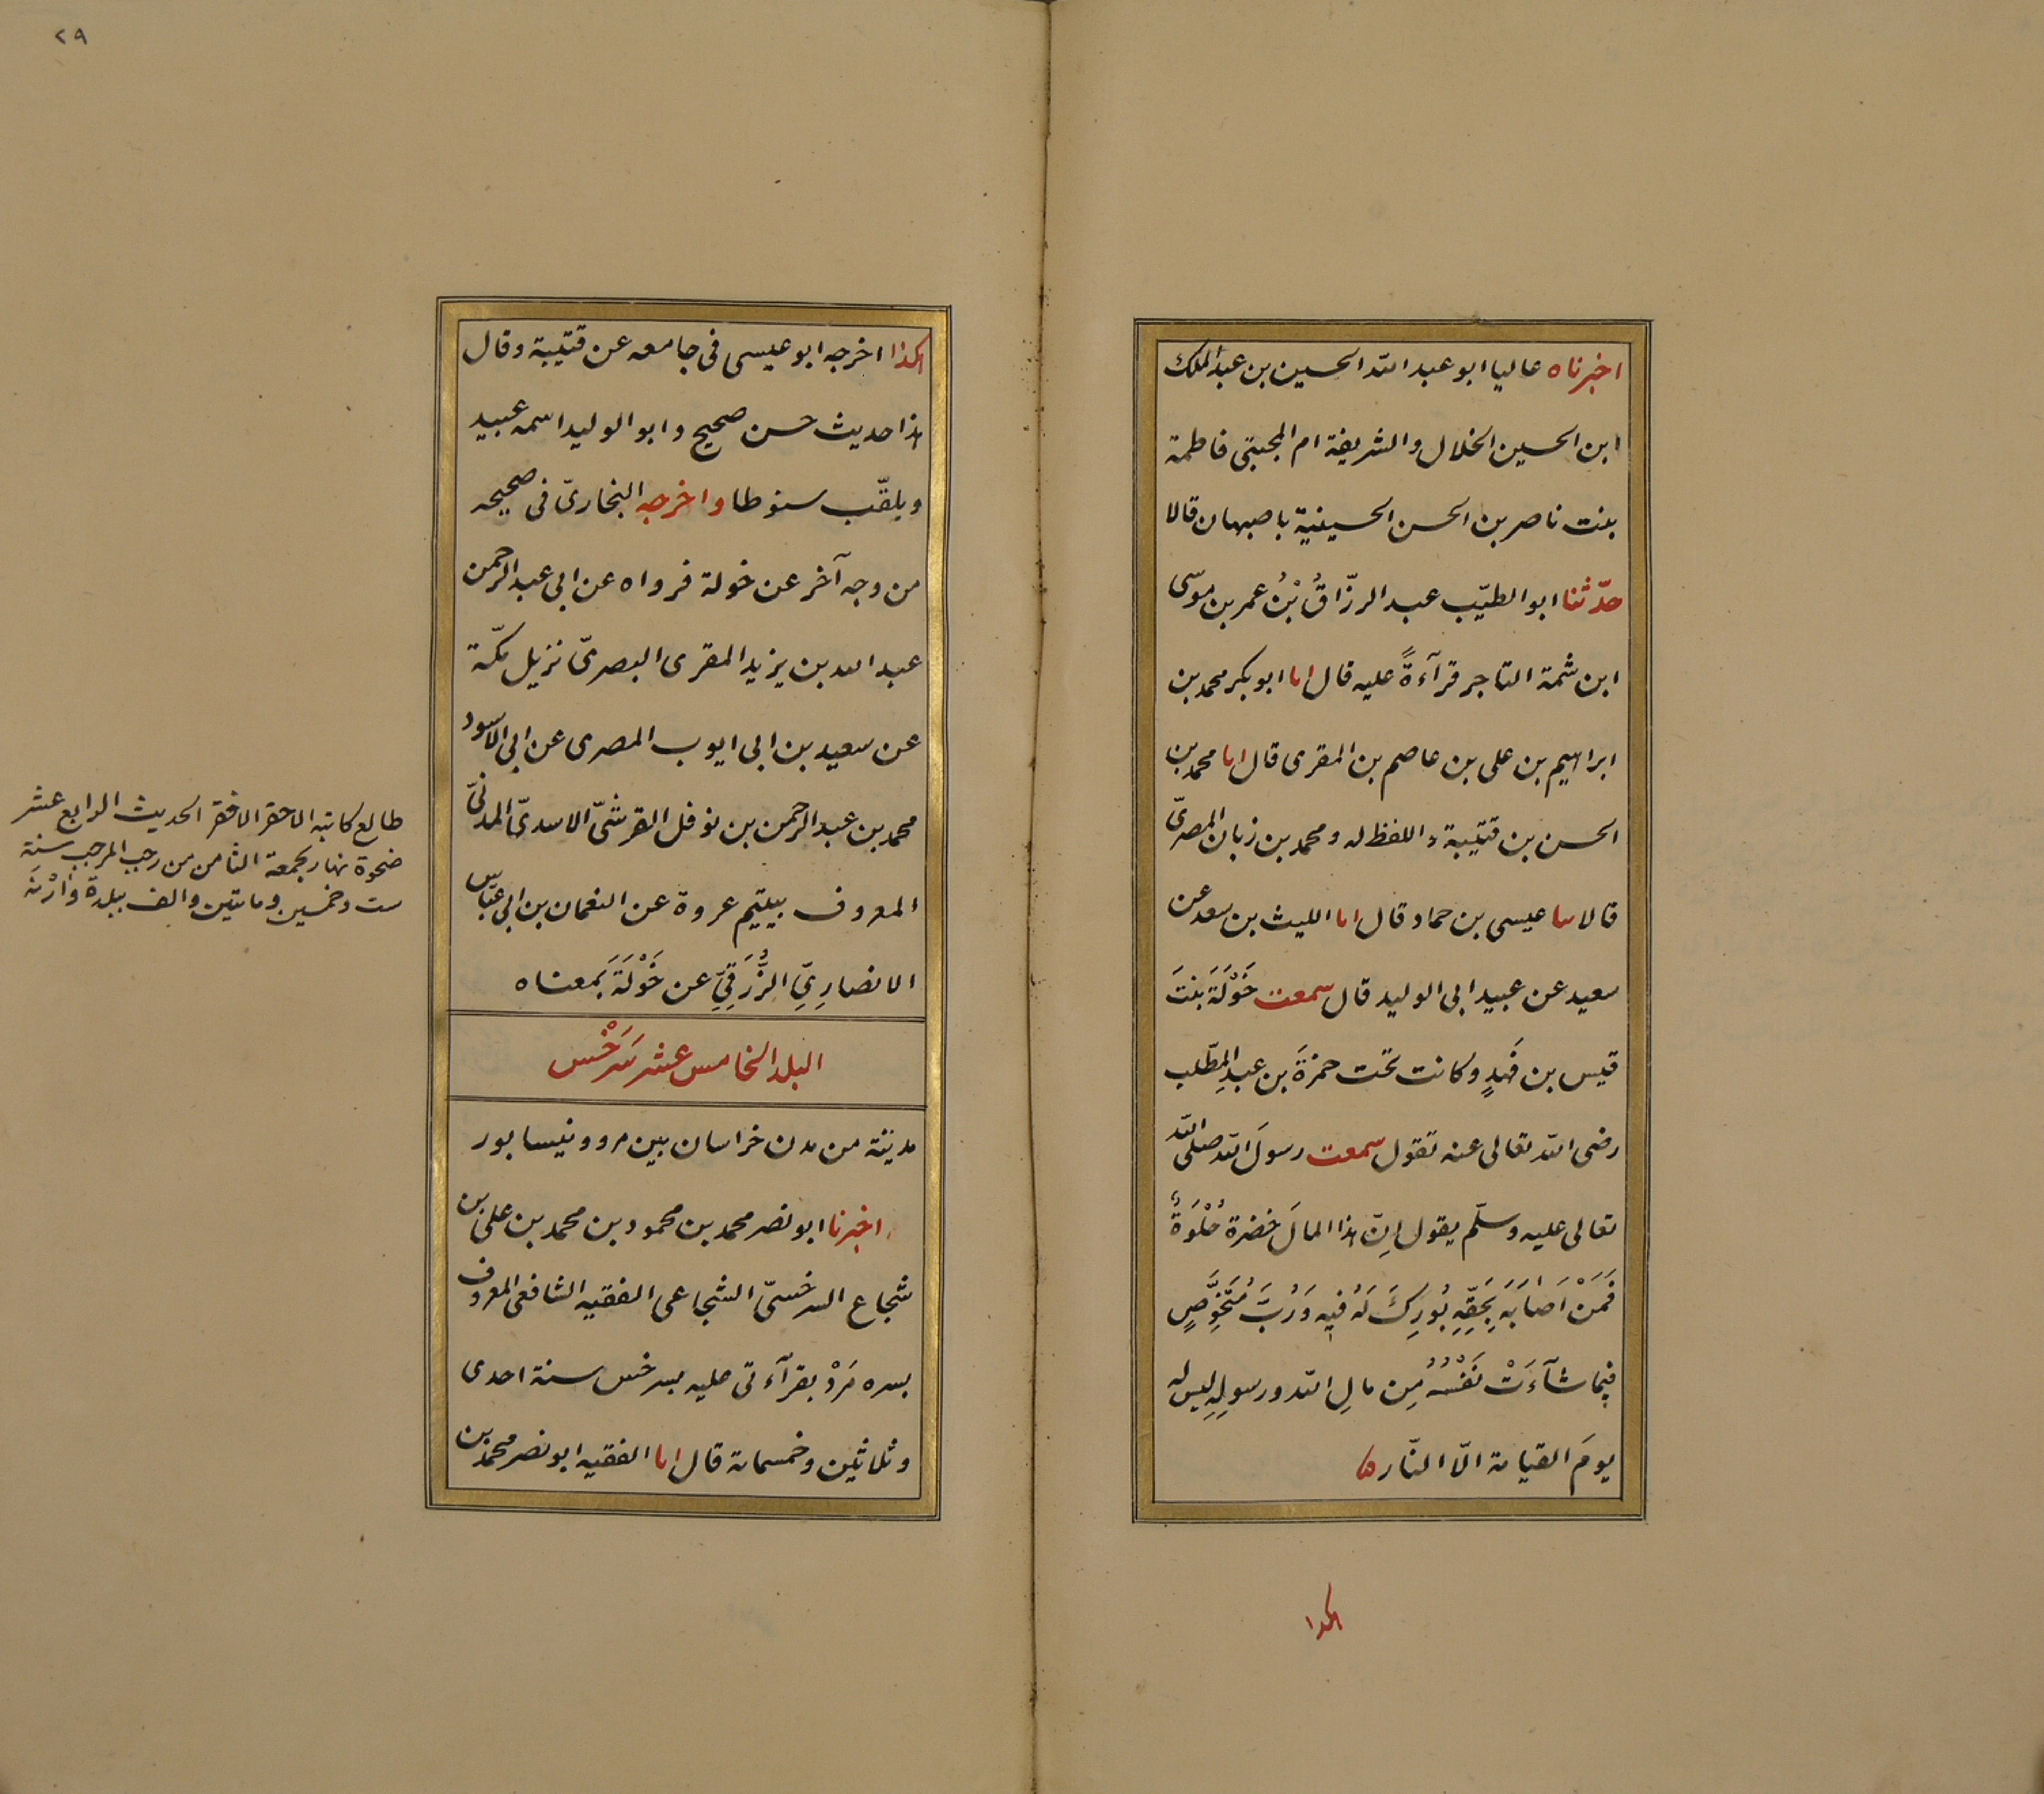 اخبرناه عاليا ابو عبد الله الحسين بن عبد الملك
ابن الحسين الخلال والشريفة ام المجتبى فاطمة
بنت ناصر بن الحسن الحسينية باصبهان قالا
حدّثنا ابو الطيّب عبد الرزّاقُ بْنُ عمر بن موسى
ابن شمة التاجر قرآءةً عليه قال انا ابو بكر محمد بن
ابراهيم بن على بن عاصم بن المقرى قال انا محمد بن
الحسن بن قتيبة واللفظ له ومحمد بن زبان المصرىّ
قالا نا عيسى بن حماد قال انا الليث بن سعد عن
سعيد عن عبيد ابى الوليد قال سمعت خَوْلَةَ بنتَ
قيس بن فَهدٍ وكانت تحت حمزةَ بن عبد المطّلب
رضى الله تعالى عنه تقول سمعت رسولَ الله صلى الله
تعالى عليه وسلّم يقول اِنّ هذا المالَ خضرة حُلْوَةٌ
فَمَنْ اَصَابَهَ بِحَقِّهِ بُورِكَ لَهُ فيه وَرُبَّ مُتَخَوِّصٍ
فيما شآءَتْ نَفْسُهُ مِن مالِ الله ورسولِهِ ليس له
يومَ القيامة الّا النّار
هكذا
٢٩
هكذا اخرجه ابو عيسى فى جامعه عن قتيبة وقال
هذا حديث حسن صحيح وابو الوليد اسمه عبيد
ويلقّب سنوطا واخرجه البخارىّ فى صحيحه
من وجه آخر عن خولة فرواه عن ابى عبد الرحمن
عبد الله بن يزيد المقرى البصرىّ نزيل مكّة
عن سعيد بن ابى ايوب المصرى عن ابى الاسود
محمد بن عبد الرحمن بن نوفل القرشىّ الاسدىّ المدنىّ
المعروف بيتيم عروة عن النعمان بن ابى عيّاس
الانصارِىِّ الزُّرَقِىِّ عن خَوْلَةَ بمعناه
البلد الخامس عشر سَرَخْس
مدينة من مدن خراسان بين مرو ونيسابور
اخبرنا ابو نصر محمد بن محمود بن محمد بن على بن
شجاع السرخسىّ الشجاعى الفقيه الشافعى المعروف
بسره مَرَدْ بقرآءتى عليه بسرخس سنة احدى
وثلاثين وخمسمائة قال انا الفقيه ابو نصر محمد بن
طالع كاتبه الاحقر الافقر الحديث الرابع عشر
ضحوة نهار الجمعة الثامن من رجب المرجب سنة
ست وخمسين ومائتين والف ببلدة وارْنَه